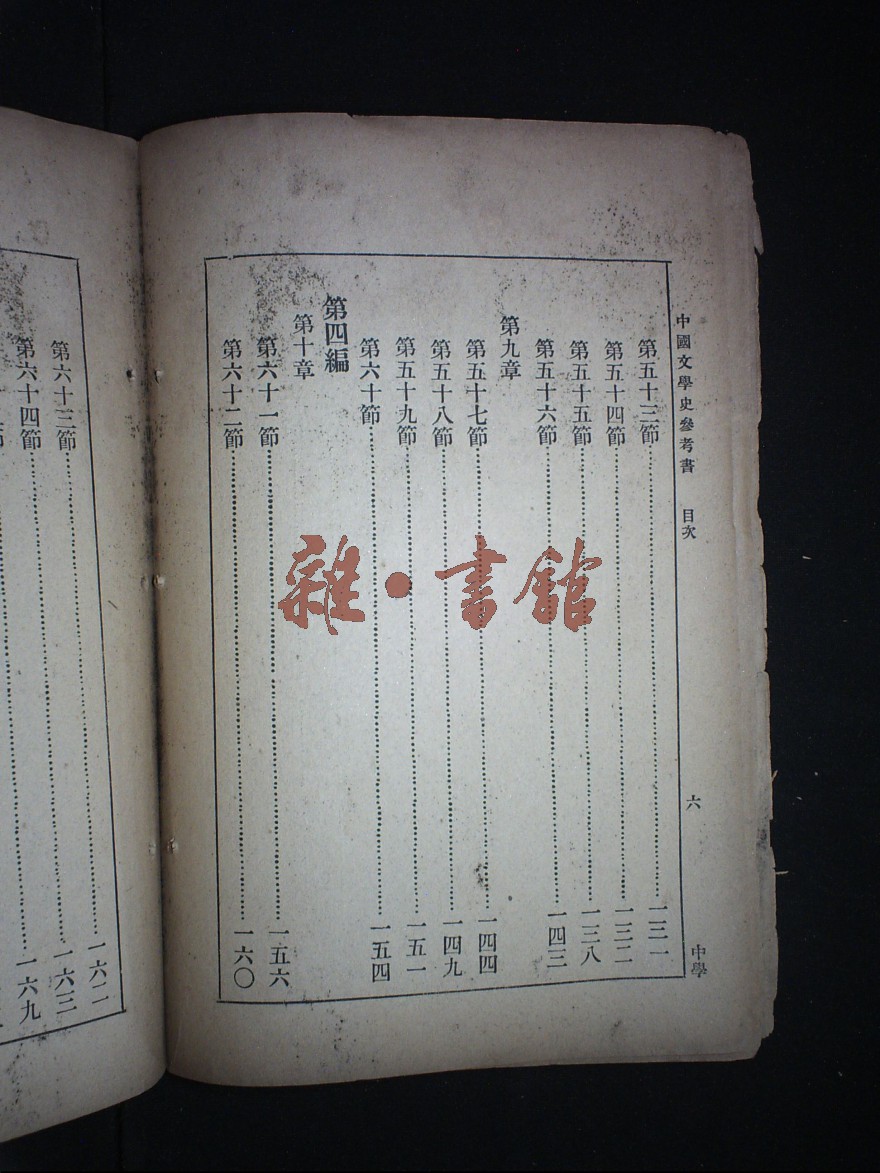 中國文學史參考書　目次
六
中學
第五十三節……一三一
第五十四節……一三二
第五十五節……一三八
第五十六節……一四三
第九章
第五十七節……一四四
第五十八節……一四九
第五十九節……一五一
第六十節……一五四
第四編
第十章
第六十一節……一五六
第六十二節……一六〇
第六十三節……一六二
第六十四節……一六九
雜·書館